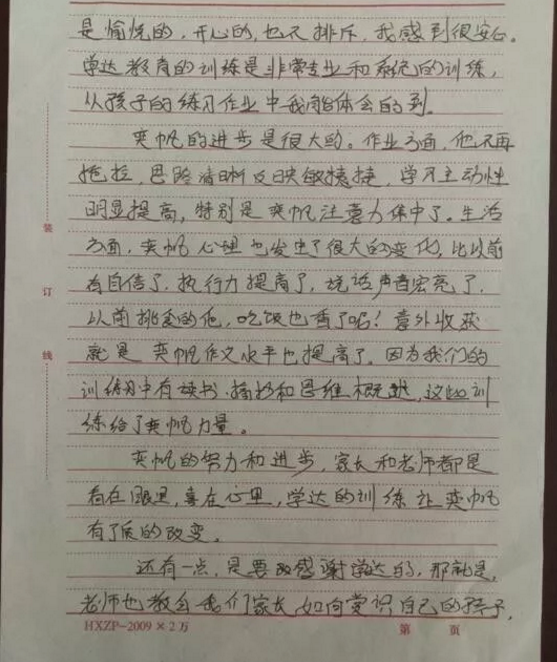 是愉悦的，开心的，也不排斥，我感到很安心。
学达教育的训练是非常专业和系统的训练，
从孩子的练习作业中我能体会的到。
奕帆的进步是很大的。作业方面，他不再
拖拉，思路清晰反映敏捷，学习主动性
明显提高，特别是奕帆注意力集中了。生活
方面，奕帆心理也发生了很大的变化，比以前
有自信了，执行力提高了，说话声音宏亮了，
以前挑食的他，吃饭也香了呢！意外收获
就是奕帆作文水平也提高了，因为我们的
训练中有读书、摘抄和思维概述，这些训
练给了奕帆力量。
奕帆的努力和进步，家长和老师都是
看在眼里，喜在心里，学达的训练让奕帆
有了质的改变。
还有一点，是要感谢学达的，那就是，
老师也教会我们家长如何赏识自己的孩子，
装
订
线
HXZP-2009×2万
第 页